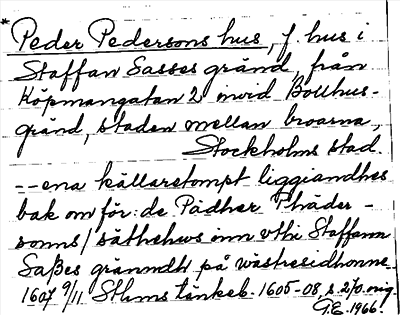 * Peder Pedersons hus, f. hus i
Staffan Sasses gränd, från
Köpmangatan 2 invid Bollhus-
gränd, staden mellan broarna,
Stockholms stad.
--ena källaretompt liggiandhes
bak om för:de Pädher Phäder-
sonns/ säthehws inn vthi Staffann
Saßes gränndh på wästresidhonne
1607 9/11 Sthms tänkeb. 1605-08, s. 270. orig.
G.E. 1966.